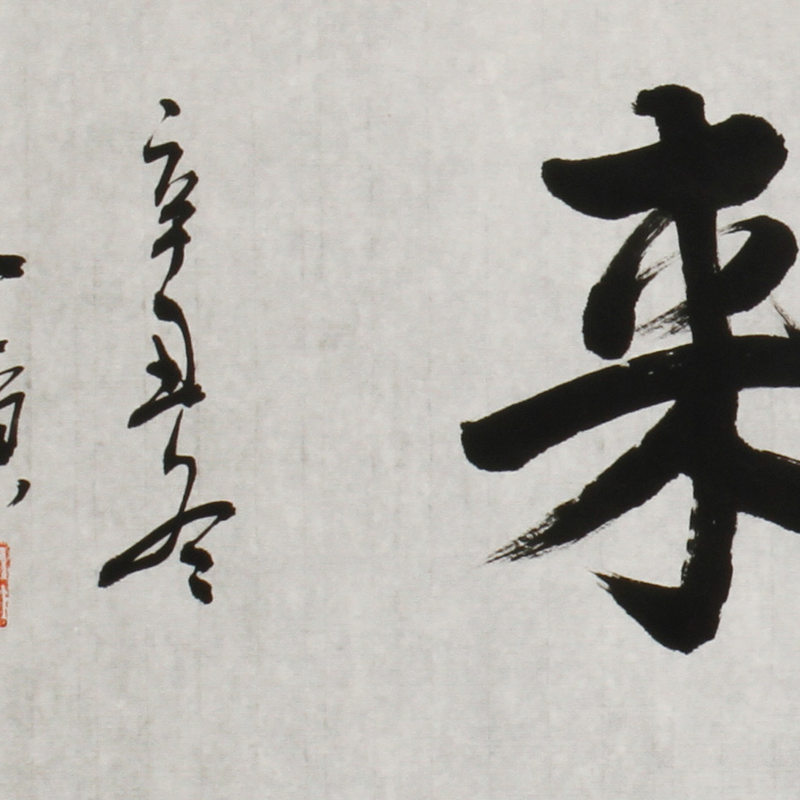 来
辛丑冬